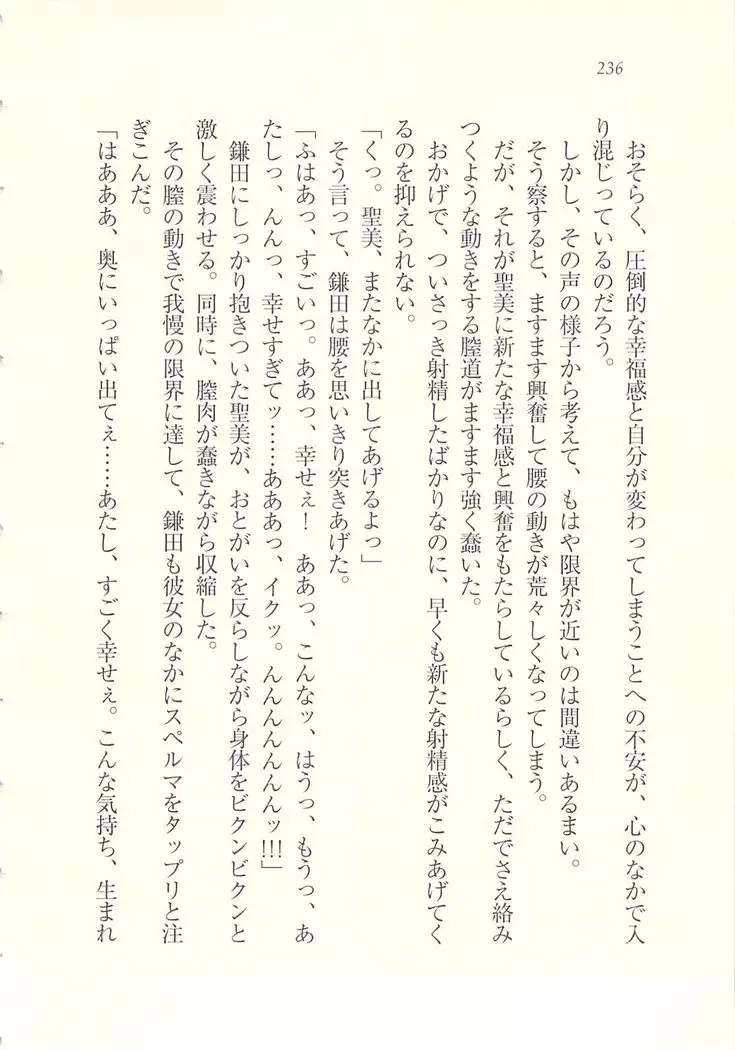 236
おそらく、圧倒的な幸福感と自分が変わってしまうことへの不安が、心のなかで入
り混じっているのだろう。
しかし、その声の様子から考えて、もはや限界が近いのは間違いあるまい。
そう察すると、ますます興奮して腰の動きが荒々しくなってしまう。
だが、それが聖美に新たな幸福感と興奮をもたらしているらしく、ただでさえ絡み
つくような動きをする膣道がますます強く蠢いた。
おかげで、ついさっき射精したばかりなのに、早くも新たな射精感がこみあげてく
るのを抑えられない。
「くっ。聖美、またなかに出してあげるよっ」
そう言って、鎌田は腰を思いきり突きあげた。
「ふはあっ、すごいっ。ああっ、幸せぇ！　ああっ、こんなッ、はうっ、もうっ、あ
たしっ、んんっ、幸せすぎてッ……あああっ、イクッ。んんんんんんッ!!!」
鎌田にしっかり抱きついた聖美が、おとがいを反らしながら身体をビクンビクンと
激しく震わせる。同時に、膣肉が蠢きながら収縮した。
その膣の動きで我慢の限界に達して、鎌田も彼女のなかにスペルマをタップリと注
ぎこんだ。
「はあああ、奥にいっぱい出てぇ……あたし、すごく幸せぇ。こんな気持ち、生まれ